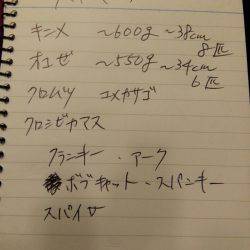 キンメ ~600g ~38cm
8匹
オコゼ ~550g ~34cm
6匹
クロムツ ユメカサゴ
クロシビカマス
フランキー・アーク
ボブキャット・スパンキー
スパイサ